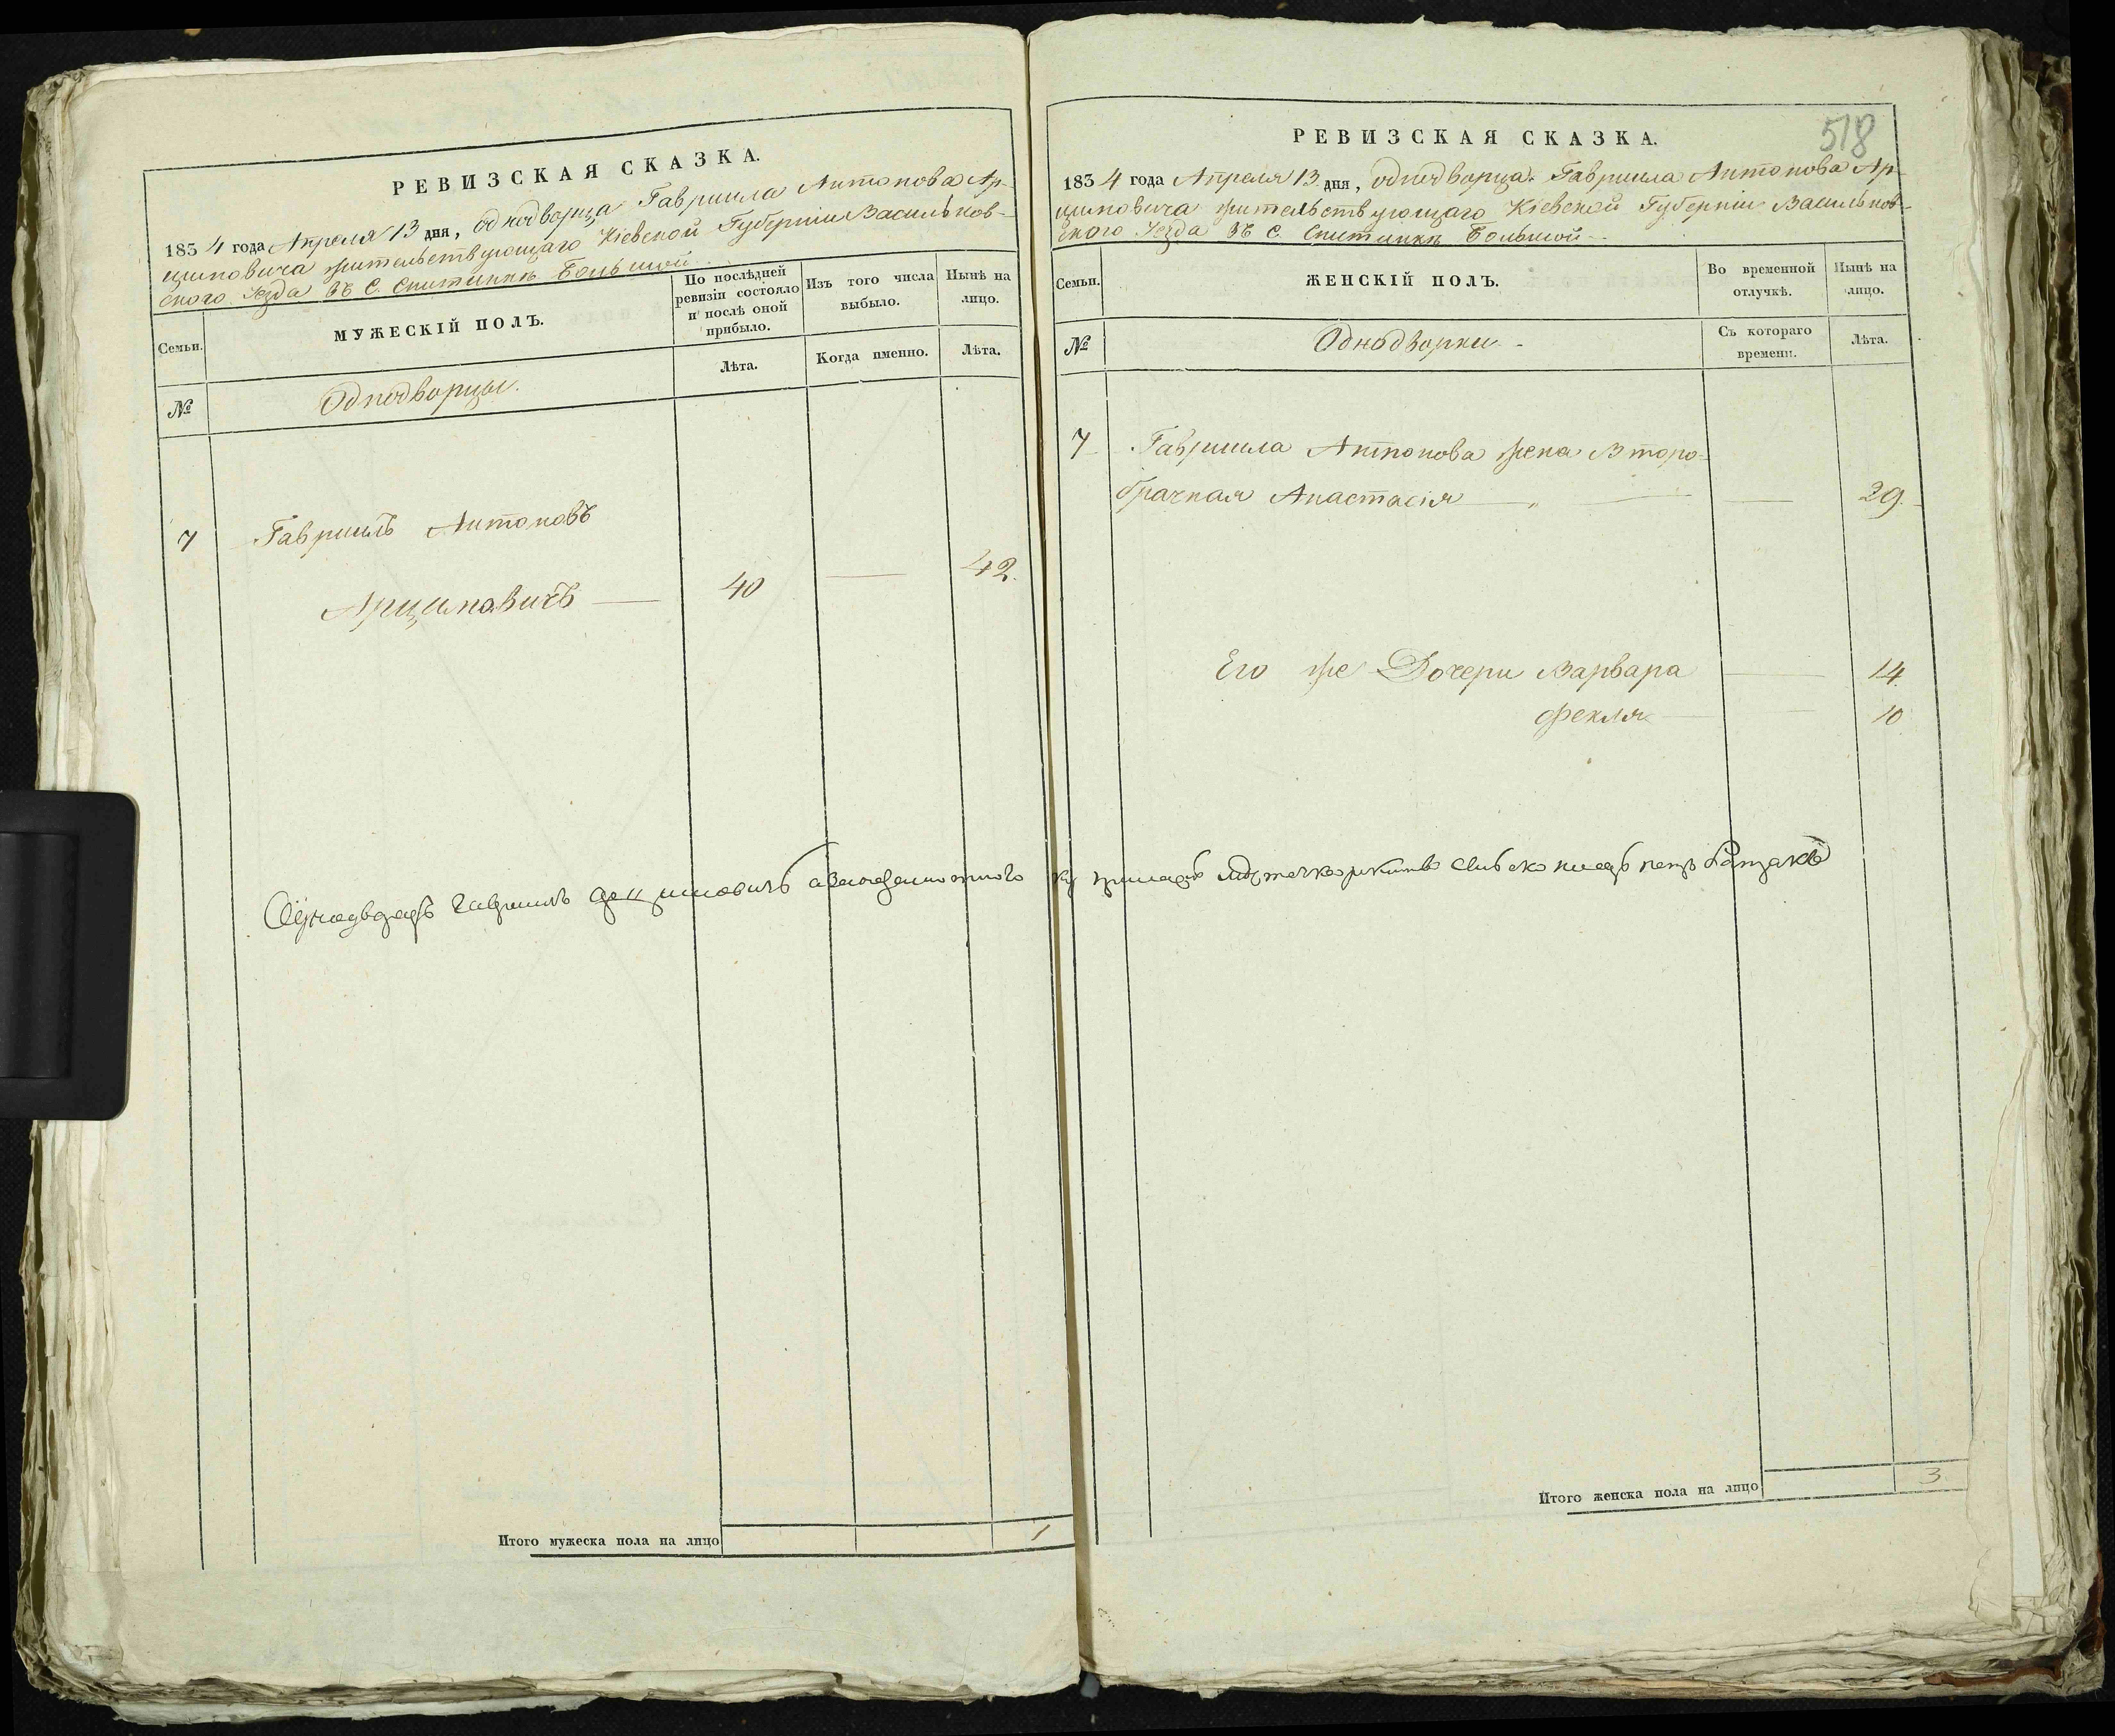 РЕВИЗСКАЯ СКАЗКА.
1834 года Апреля 13 дня, однодворца Гавриила Антонова Ар-
цимовича жительствующаго Кіевской Губерніи Васильков-
ского Уезда въ С. Снитинкѣ Большой
Семьи.
МУЖЕСКІЙ ПОЛЪ.
По послѣдней
ревизіи состояло
и послѣ оной
прибыло.
Изъ того числа
выбыло.
Нынѣ на
лицо.
№
Однодворцы.
Лѣта.
Когда именно.
Лѣта.
7 Гавриилъ Антоновъ
Арцимовичъ — 40 — 42.
Итого мужеска пола на лицо 1
518
РЕВИЗСКАЯ СКАЗКА.
1834 года Апреля 13 дня, однодворца Гавриила Антонова Ар-
цимовича жительствующаго Кіевской Губерніи Васильков-
ского Уезда въ С. Снитинкѣ Большой
Семьи.
ЖЕНСКІЙ ПОЛЪ.
Во временной
отлучкѣ.
Нынѣ на
лицо.
№
Однодворки
Съ котораго
времени.
Лѣта.
7 Гавриила Антонова жена Второ-
брачная Анастасія — — 29.
Его же Дочери Варвара — 14.
Фекла — — 10
Однодворецъ Гавриилъ Арцимовичъ
Итого женска пола на лицо 3